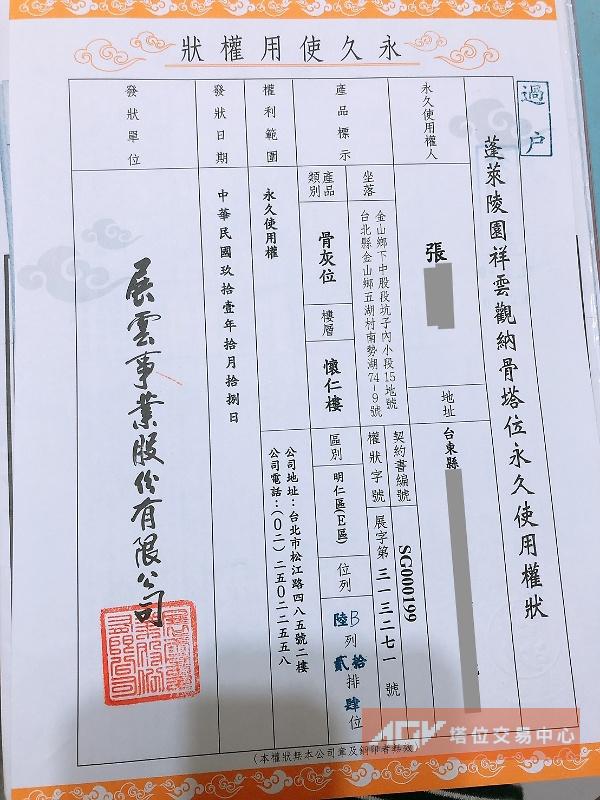 永久使用權狀
過户
蓬萊陵園祥雲觀納骨塔位永久使用權狀
永久使用權人
張
地址
台東縣
產品標示
坐落
金山鄉下中股段坑子內小段15地號
台北縣金山鄉五湖村南勢湖74-9號
契約書編號
SG000199
權狀字號
展字第三一三二七一號
產品類別
骨灰位
樓層
懷仁樓
區別
明仁區(E區)
位列
陸B列貳拾排肆位
權利範圍
永久使用權
公司地址：台北市松江路四八五號二樓
公司電話：(〇二)二五〇二二五五八
發狀日期
中華民國玖拾壹年拾月拾捌日
發狀單位
展雲事業股份有限公司
(本權狀無本公司章及鋼印者無效)
AGV 塔位交易中心